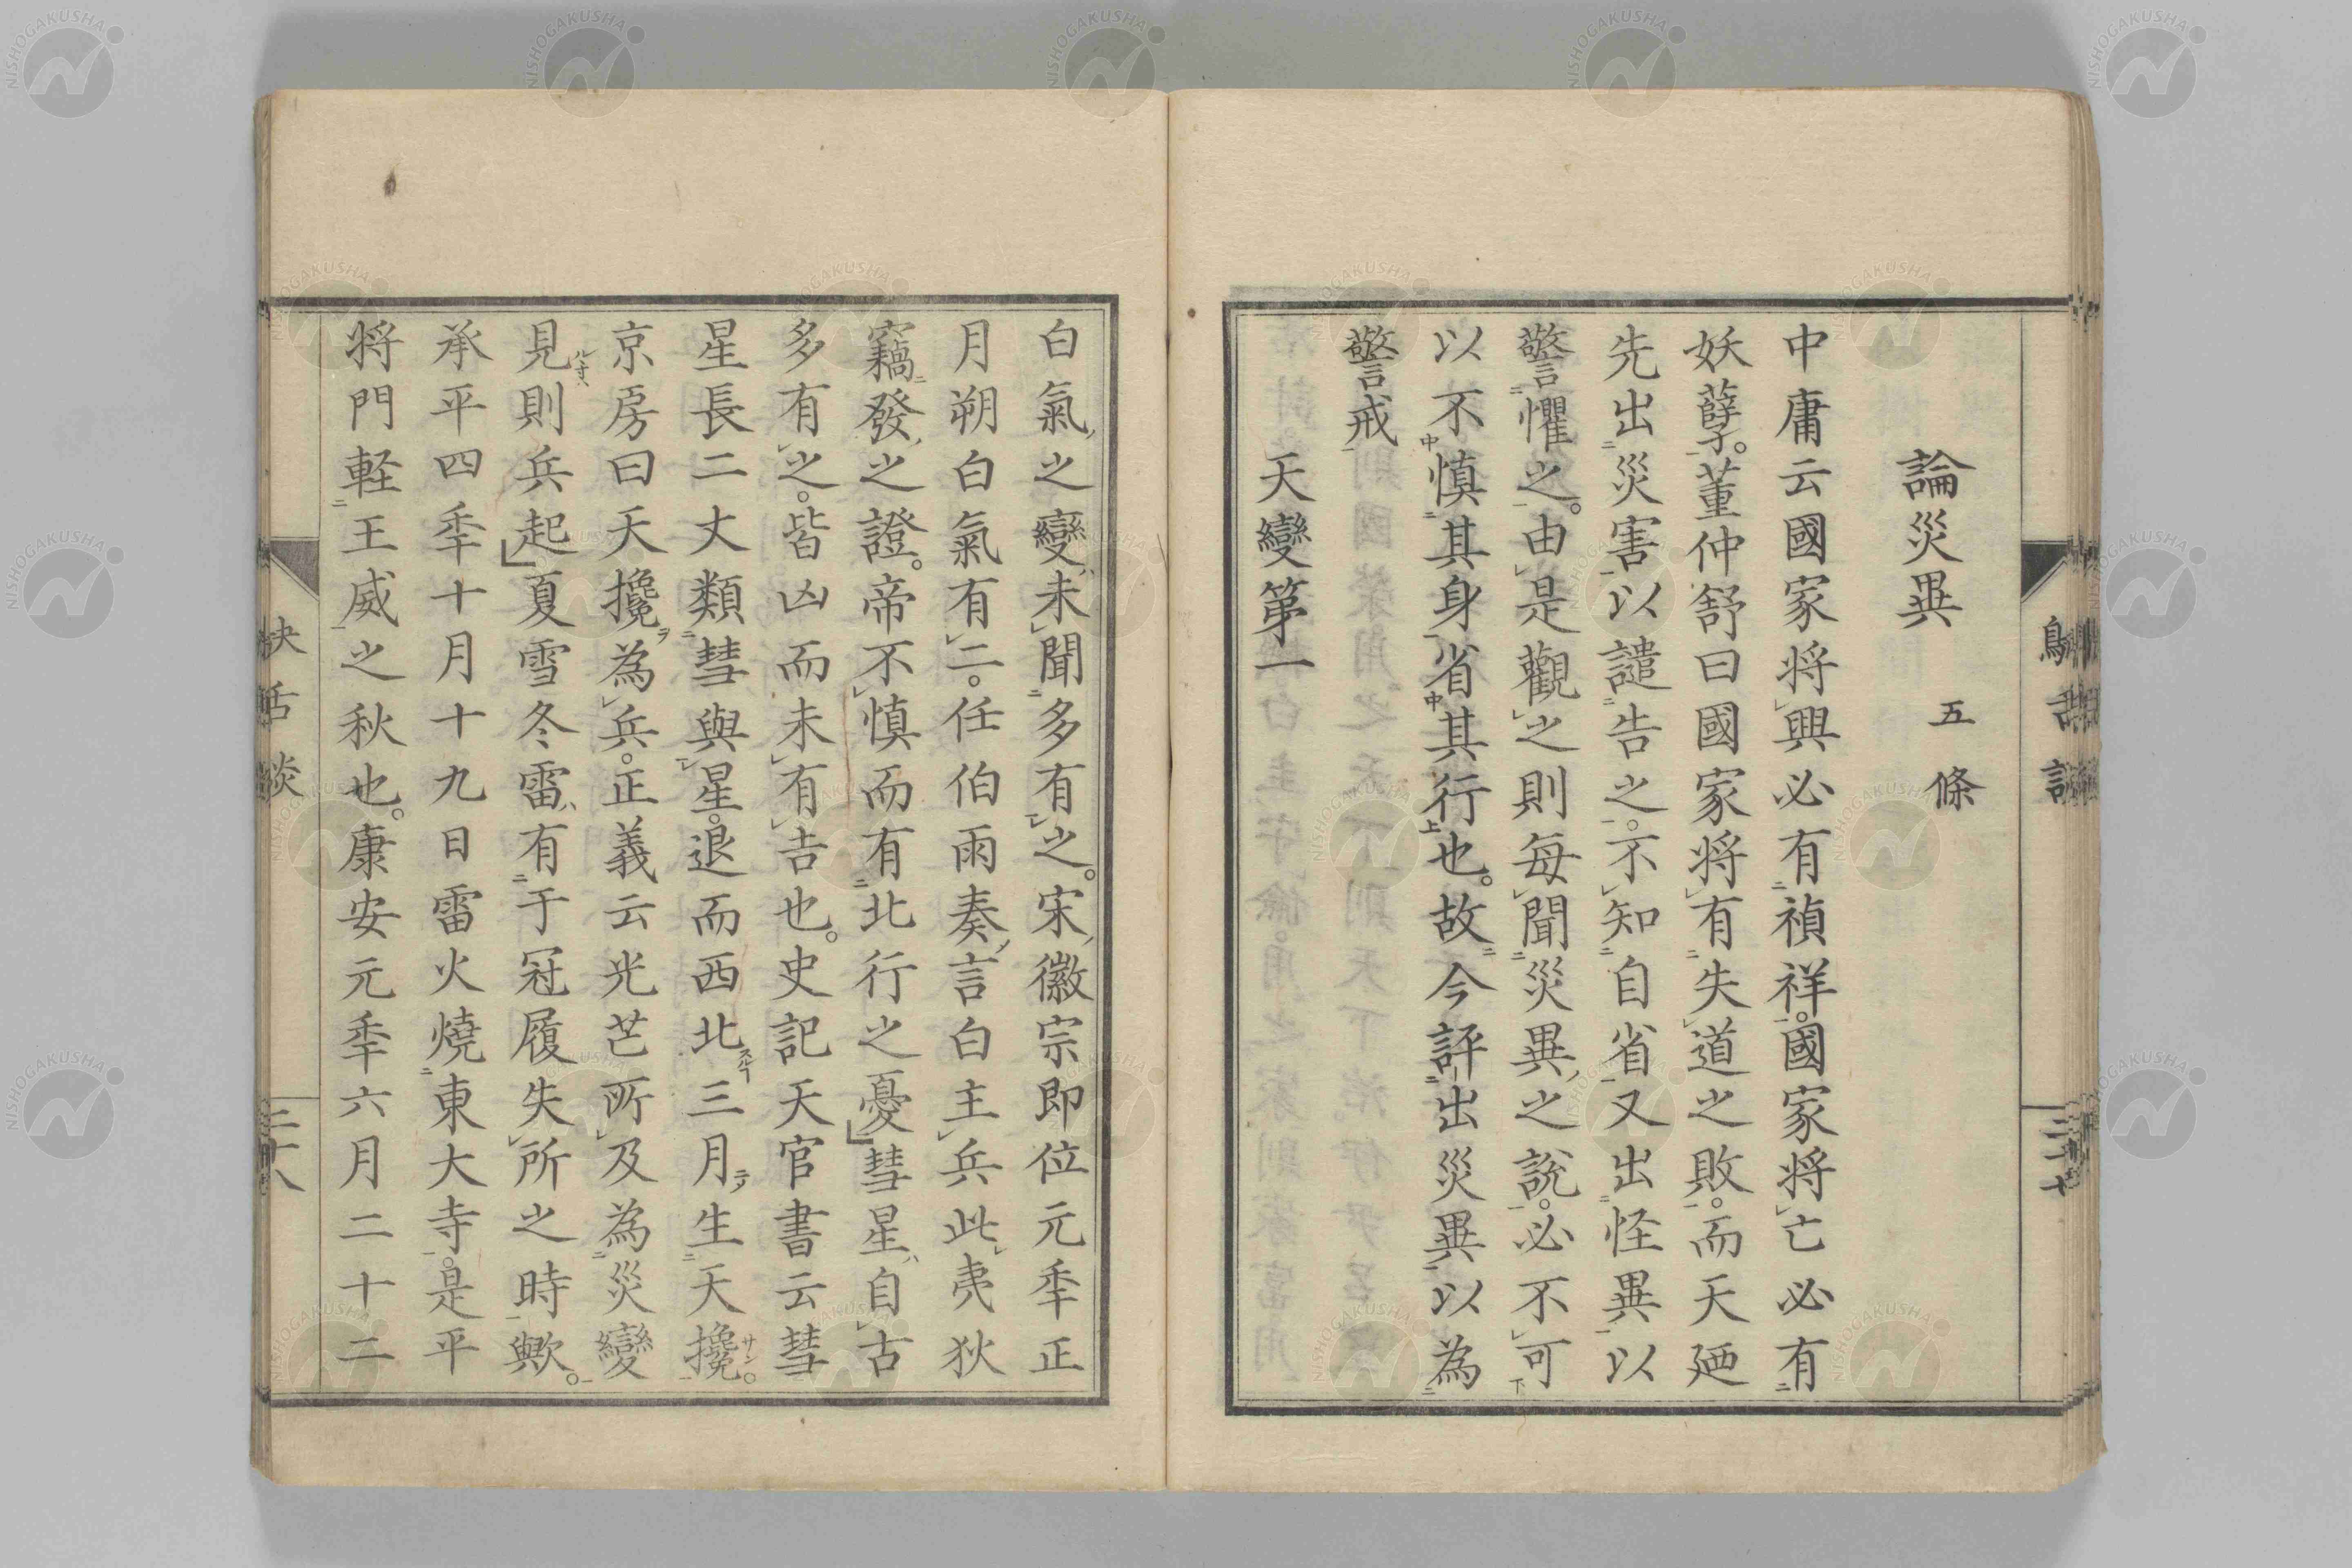 論災異　五條
中庸云國家将興必有禎祥。國家将亡必有
妖孽。董仲舒曰國家将有失道之敗。而天廼
先出災害以譴告之。不知自省又出怪異以
警懼之。由是觀之則每聞災異之說。必不可
以不慎其身省其行也。故今評出災異以為
警戒
天變第一
白氣之變未聞多有之。宋徽宗即位元秊正
月朔白氣有二。任伯雨奏言白主兵此夷狄
竊發之證。帝不慎而有北行之憂」彗星自古
多有之。皆凶而未有吉也。史記天官書云彗
星長二丈類彗與星。退而西北三月生天攙。
京房曰天攙為兵。正義云光芒所及為災變
見則兵起」夏雪冬雷有于冠履失所之時歟。
承平四秊十月十九日雷火燒東大寺。是平
将門軽王威之秋也。康安元秊六月二十二
NISHOGAKUSHA